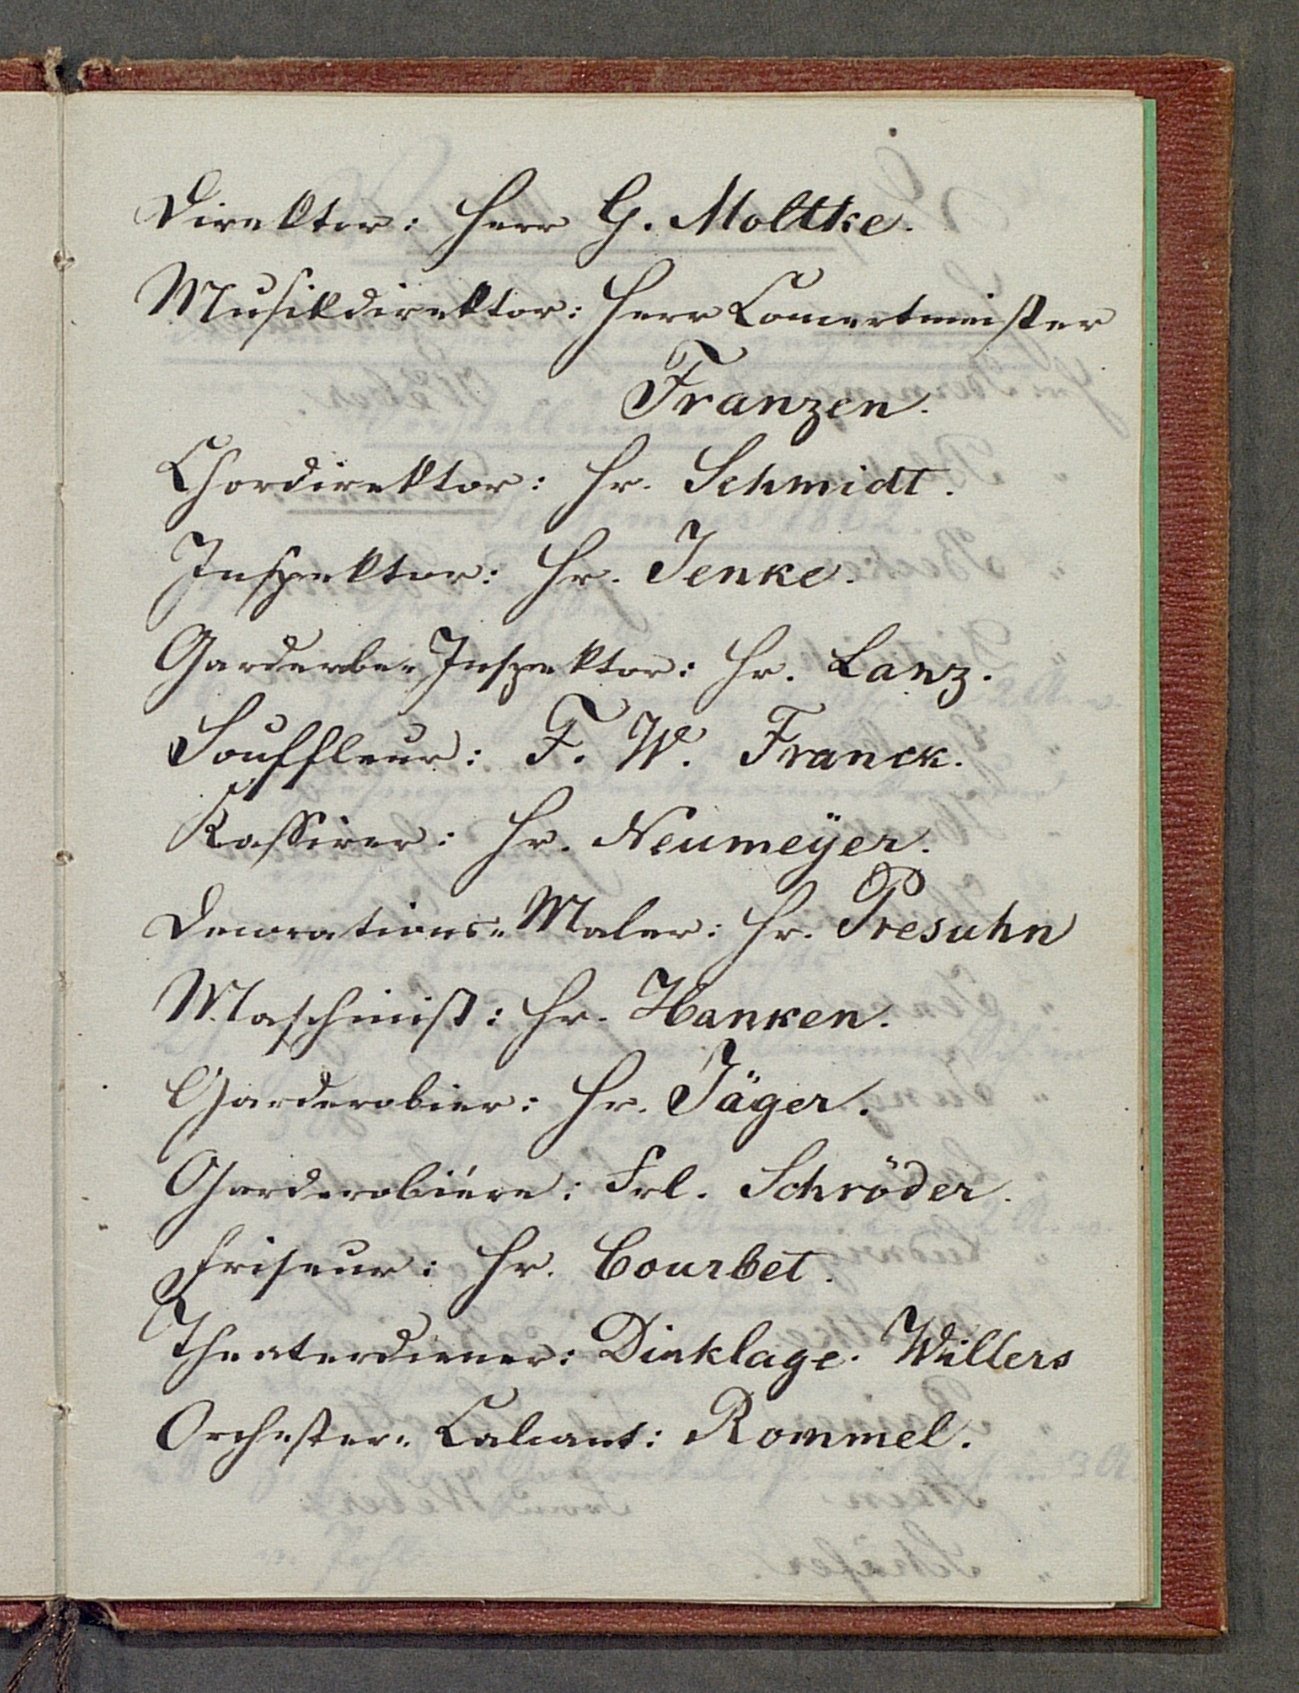 Direktor: Herr G. Moltke.
Musikdirektor: Herr Concertmeister
Franzen.
Chordirektor: Hr. Schmidt.
Inspektor: Hr. Jenke.
Garderobe-Inspektor: Hr. Lanz.
Souffleur: F. W. Franck.
Kassirer: Hr. Neumeÿer.
Decorations-Maler: Hr. Presuhn
Maschinist: Hr. Hanken.
Garderobier: Hr. Jäger.
Garderobiére: Frl. Schröder.
Friseur: Hr. Courbet.
Theaterdiener: Dinklage. Willers
Orchester-Calcant: Rommel.